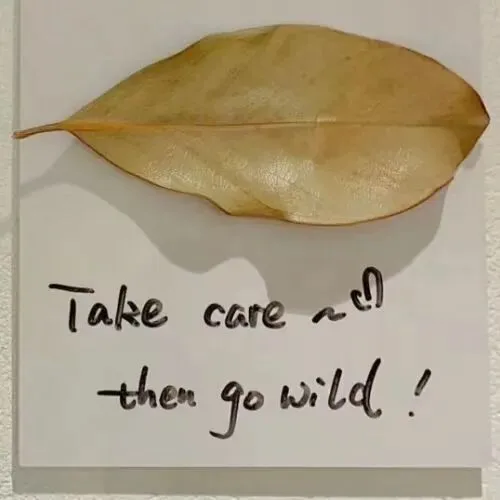 Take care ~
then go wild !